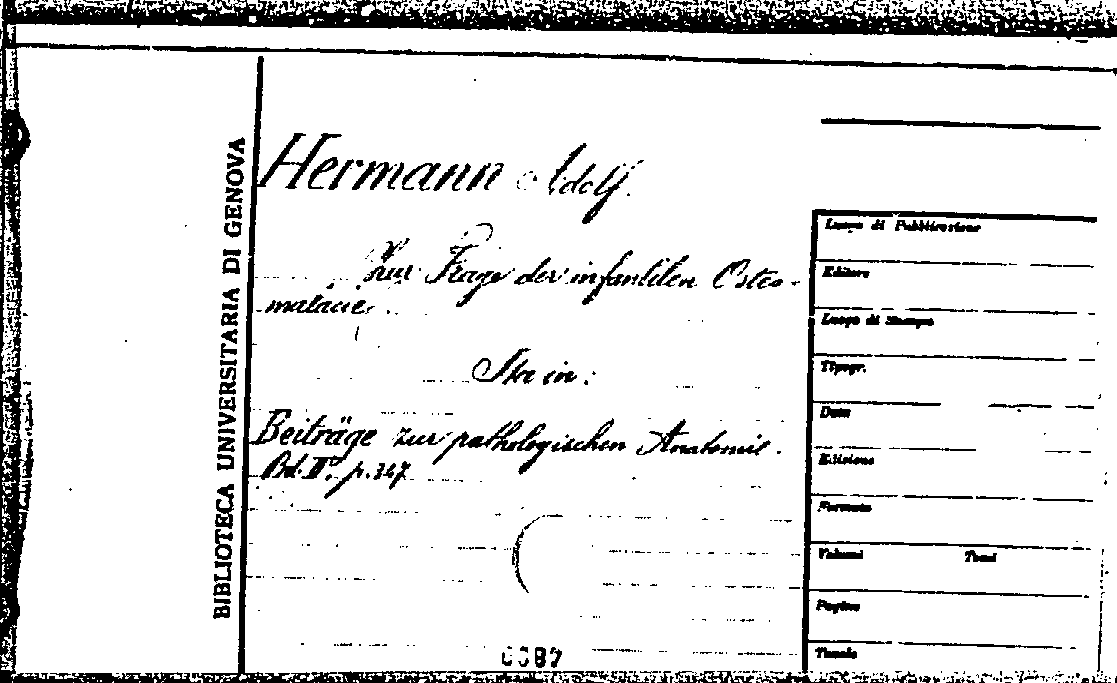 BIBLIOTECA UNIVERSITARIA DI GENOVA
Hermann Adolf.
Zur Frage der infantilen Osteo-
malacie.
Sta in:
Beiträge zur pathologischen Anatomie.
Bd. II°. p. 327
Luogo di Pubblicazione
Editore
Luogo di Stampa
Tipogr.
Data
Edizione
Formato
Volumi Tomi
Pagine
Tavole